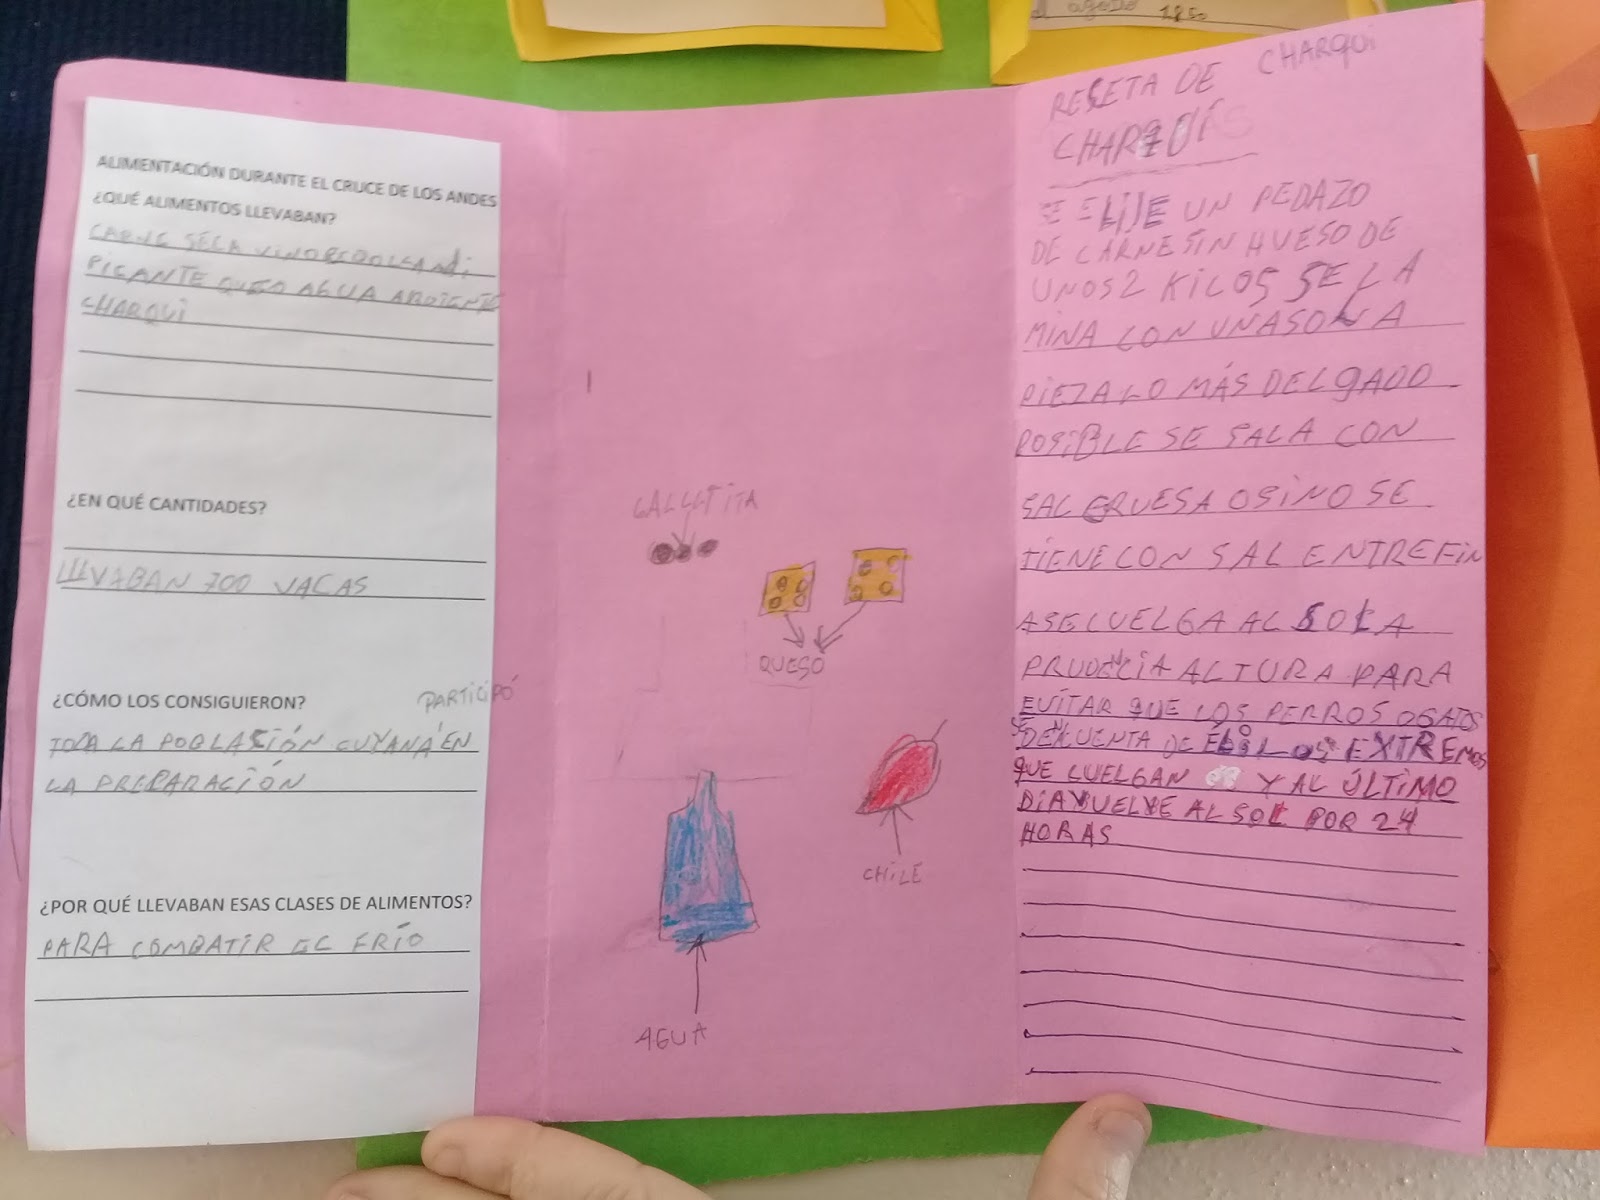 agosto 1850
ALIMENTACIÓN DURANTE EL CRUCE DE LOS ANDES
¿QUÉ ALIMENTOS LLEVABAN?
CARNE SECA VINO
PICANTE QUESO AGUA ARDIENTE
CHARQUI
¿EN QUÉ CANTIDADES?
LLEVABAN 700 VACAS
¿CÓMO LOS CONSIGUIERON?
PARTICIPÓ
TODA LA POBLASIÓN CUYANA EN
LA PREPARACIÓN
¿POR QUÉ LLEVABAN ESAS CLASES DE ALIMENTOS?
PARA COMBATIR EL FRÍO
GALLETITA
QUESO
CHILE
AGUA
RESETA DE CHARQUI
SE ELIJE UN PEDAZO
DE CARNE SIN HUESO DE
UNOS 2 KILOS SE LA
MINA CON UNA SOLA
PIEZA LO MÁS DELGADO
POSIBLE SE SALA CON
SAL GRUESA O SINO SE
TIENE CON SAL ENTREFIN
A SE CUELGA AL SOL A
PRUDENCIA ALTURA PARA
EVITAR QUE LOS PERROS O GATOS
SE DEN CUENTA DE ELLO LOS EXTREMOS
QUE CUELGAN Y AL ÚLTIMO
DIA VUELVE AL SOL POR 24
HORAS